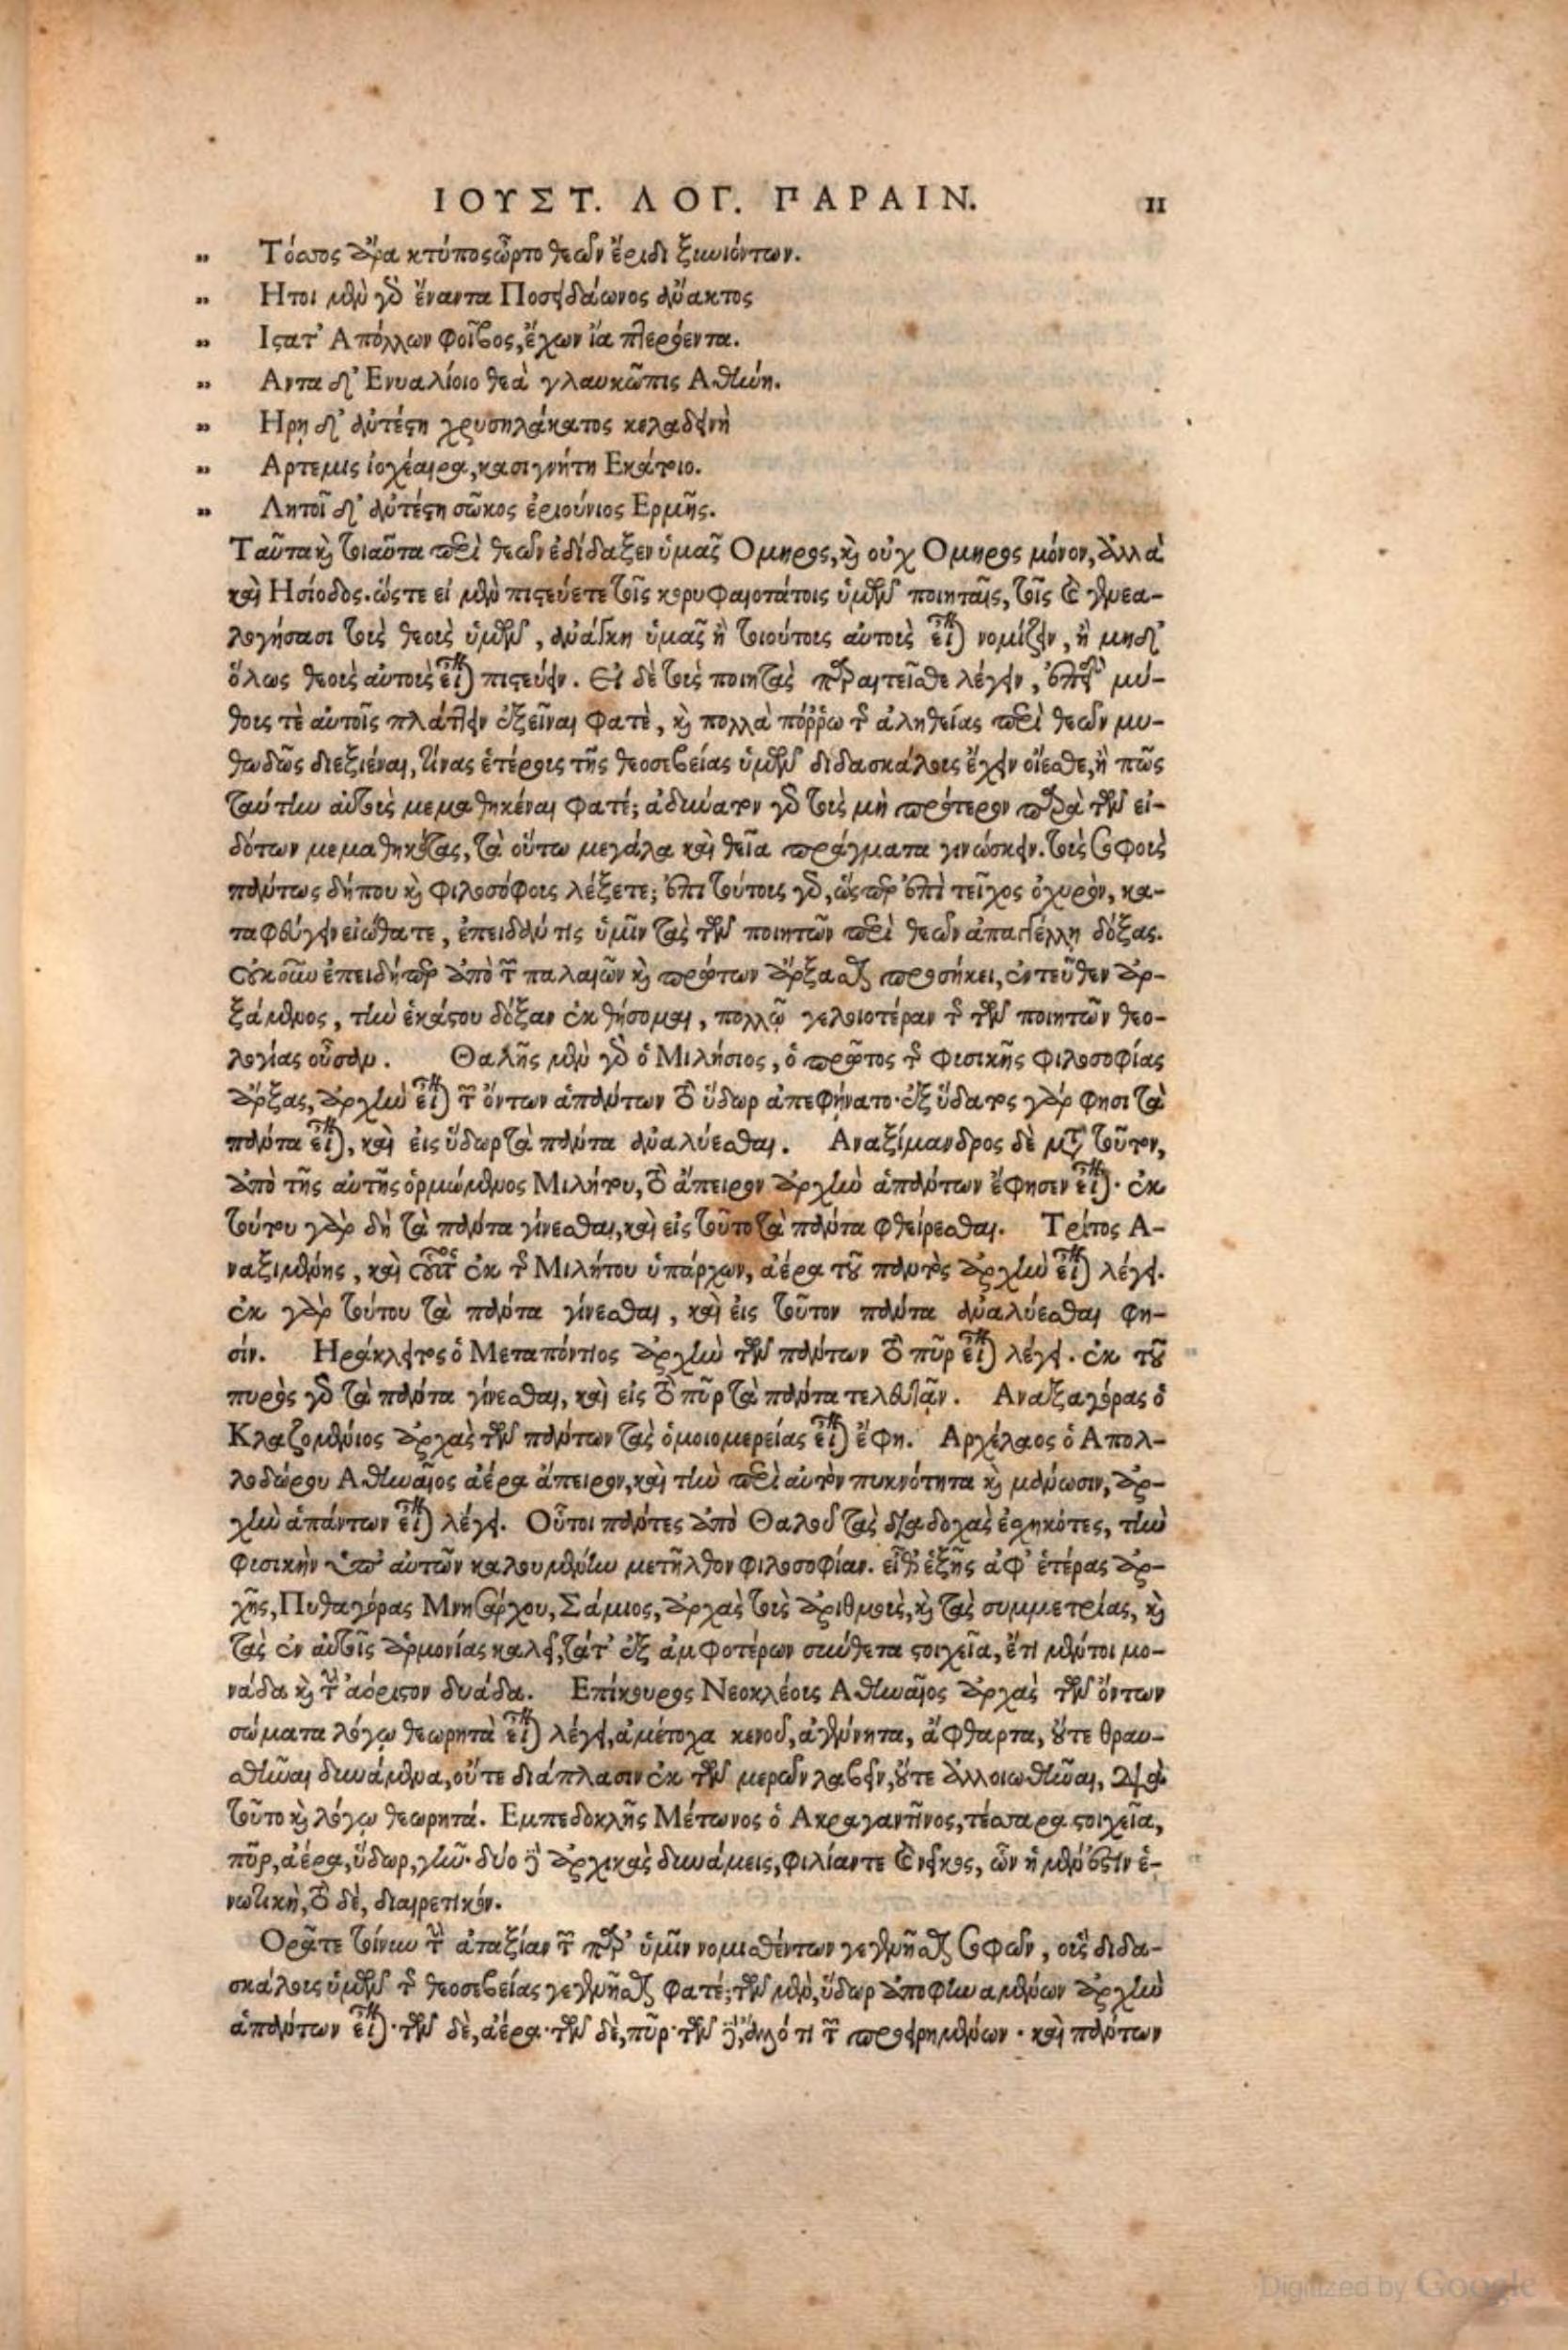 ΙΟΥΣΤ. ΛΟΓ. ΠΑΡΑΙΝ. 11
„ Τόσσος ἄρα κτύπος ὦρτο θεῶν ἔριδι ξυνιόντων.
„ Ητοι μὲν γὸ ἔναντα Ποσειδάωνος ἄνακτος
„ Ιστατ' Απόλλων φοῖβος, ἔχων ἴα πτερόεντα.
„ Αντα δ' Ενυαλίοιο θεὰ γλαυκῶπις Αθήνη.
„ Ηρῃ δ' ἀντέστη χρυσηλάκατος κελαδεινὴ
„ Αρτεμις ἰοχέαιρα, κασιγνήτη Εκάτοιο.
„ Λητοῖ δ' ἀντέστη σῶκος ἐριούνιος Ερμῆς.
Ταῦτα καὶ τοιαῦτα περὶ θεῶν ἐδίδαξεν ὑμᾶς Ομηρος, καὶ οὐχ Ομηρος μόνον, ἀλλὰ
καὶ Ησίοδος. ὥστε εἰ μὲν πιστεύετε τοῖς κορυφαιοτάτοις ὑμῶν ποιηταῖς, τοῖς καὶ γενεα-
λογήσασι τοὺς θεοὺς ὑμῶν, ἀνάγκη ὑμᾶς ἢ τοιούτους αὐτοὺς εἶναι νομίζειν, ἢ μηδ'
ὅλως θεοὺς αὐτοὺς εἶναι πιστεύειν. Εἰ δὲ τοὺς ποιητὰς παραιτεῖσθε λέγειν, ἐπεὶ μύ-
θοις τὲ αὐτοῖς πλάττειν ἐξεῖναι φατὲ, καὶ πολλὰ πόῤῥω τῆς ἀληθείας περὶ θεῶν μυ-
θωδῶς διεξιέναι, τίνας ἑτέρους τῆς θεοσεβείας ὑμῶν διδασκάλους ἔχειν οἴεσθε, ἢ πῶς
ταύτην αὐτοὺς μεμαθηκέναι φατέ; ἀδύνατον γὸ τοὺς μὴ πρότερον παρὰ τῶν εἰ-
δότων μεμαθηκότας, τὰ οὕτω μεγάλα καὶ θεῖα πράγματα γινώσκειν. τοὺς σοφοὺς
πάντως δήπου καὶ φιλοσόφους λέξετε; ἐπὶ τούτους γὸ, ὥσπερ ἐπὶ τεῖχος ὀχυρὸν, κα-
ταφεύγειν εἰώθατε, ἐπειδάν τις ὑμῖν τὰς τῶν ποιητῶν περὶ θεῶν ἀπαγγέλλῃ δόξας.
Οὐκοῦν ἐπειδήπερ ἀπὸ τῶν παλαιῶν καὶ πρώτων ἄρξασθαι προσήκει, ἐντεῦθεν ἀρ-
ξάμενος, τὴν ἑκάστου δόξαν ἐκθήσομαι, πολλῷ γελοιοτέραν τῆς τῶν ποιητῶν θεο-
λογίας οὖσαν. Θαλῆς μὲν γὸ ὁ Μιλήσιος, ὁ πρῶτος τῆς φυσικῆς φιλοσοφίας
ἄρξας, ἀρχὴν εἶναι τῶν ὄντων ἁπάντων τὸ ὕδωρ ἀπεφήνατο· ἐξ ὕδατος γάρ φησι τὰ
πάντα εἶναι, καὶ εἰς ὕδωρ τὰ πάντα ἀναλύεσθαι. Αναξίμανδρος δὲ μετὰ τοῦτον,
ἀπὸ τῆς αὐτῆς ὁρμώμενος Μιλήτου, τὸ ἄπειρον ἀρχὴν ἁπάντων ἔφησεν εἶναι· ἐκ
τούτου γὰρ δὴ τὰ πάντα γίνεσθαι, καὶ εἰς τοῦτο τὰ πάντα φθείρεσθαι. Τρίτος Α-
ναξιμένης, καὶ οὗτος ἐκ τῆς Μιλήτου ὑπάρχων, ἀέρα τοῦ παντὸς ἀρχὴν εἶναι λέγει.
ἐκ γὰρ τούτου τὰ πάντα γίνεσθαι, καὶ εἰς τοῦτον πάντα ἀναλύεσθαι φη-
σίν. Ηράκλειτος ὁ Μεταπόντιος ἀρχὴν τῶν πάντων τὸ πῦρ εἶναι λέγει. ἐκ τοῦ
πυρὸς γὸ τὰ πάντα γίνεσθαι, καὶ εἰς τὸ πῦρ τὰ πάντα τελευτᾷν. Αναξαγόρας ὁ
Κλαζομένιος ἀρχὰς τῶν πάντων τὰς ὁμοιομερείας εἶναι ἔφη. Αρχέλαος ὁ Απολ-
λοδώρου Αθηναῖος ἀέρα ἄπειρον, καὶ τὴν περὶ αὐτὸν πυκνότητα καὶ μάνωσιν, ἀρ-
χὴν ἁπάντων εἶναι λέγει. Οὗτοι πάντες ἀπὸ Θαλοῦ τὰς διαδοχὰς ἐσχηκότες, τὴν
φυσικὴν ὑπ' αὐτῶν καλουμένην μετῆλθον φιλοσοφίαν. εἶθ' ἑξῆς ἀφ' ἑτέρας ἀρ-
χῆς, Πυθαγόρας Μνησάρχου, Σάμιος, ἀρχὰς τοὺς ἀριθμοὺς, καὶ τὰς συμμετρίας, καὶ
τὰς ἐν αὐτοῖς ἁρμονίας καλεῖ, τάτ' ἐξ ἀμφοτέρων σύνθετα στοιχεῖα, ἔτι μέντοι μο-
νάδα καὶ τὴν ἀόριστον δυάδα. Επίκουρος Νεοκλέους Αθηναῖος ἀρχὰς τῶν ὄντων
σώματα λόγῳ θεωρητὰ εἶναι λέγει, ἀμέτοχα κενοῦ, ἀγένητα, ἄφθαρτα, οὔτε θραυ-
σθῆναι δυνάμενα, οὔτε διάπλασιν ἐκ τῶν μερῶν λαβεῖν, οὔτε ἀλλοιωθῆναι, διὰ
τοῦτο καὶ λόγῳ θεωρητά. Εμπεδοκλῆς Μέτωνος ὁ Ακραγαντῖνος, τέσσαρα στοιχεῖα,
πῦρ, ἀέρα, ὕδωρ, γῆν· δύο δὲ ἀρχικὰς δυνάμεις, φιλίαν τε καὶ νεῖκος, ὧν ἡ μὲν ἐστὶν ἑ-
νωτικὴ, τὸ δὲ, διαιρετικόν.
Ορᾶτε τοίνυν τὴν ἀταξίαν τῶν παρ' ὑμῖν νομισθέντων γεγενῆσθαι σοφῶν, οὓς διδα-
σκάλους ὑμῶν τῆς θεοσεβείας γεγενῆσθαι φατέ; τῶν μὲν, ὕδωρ ἀποφηναμένων ἀρχὴν
ἁπάντων εἶναι· τῶν δὲ, ἀέρα· τῶν δὲ, πῦρ· τῶν δὲ, ἄλλό τι τῶν προειρημένων· καὶ πάντων
Digitized by Google